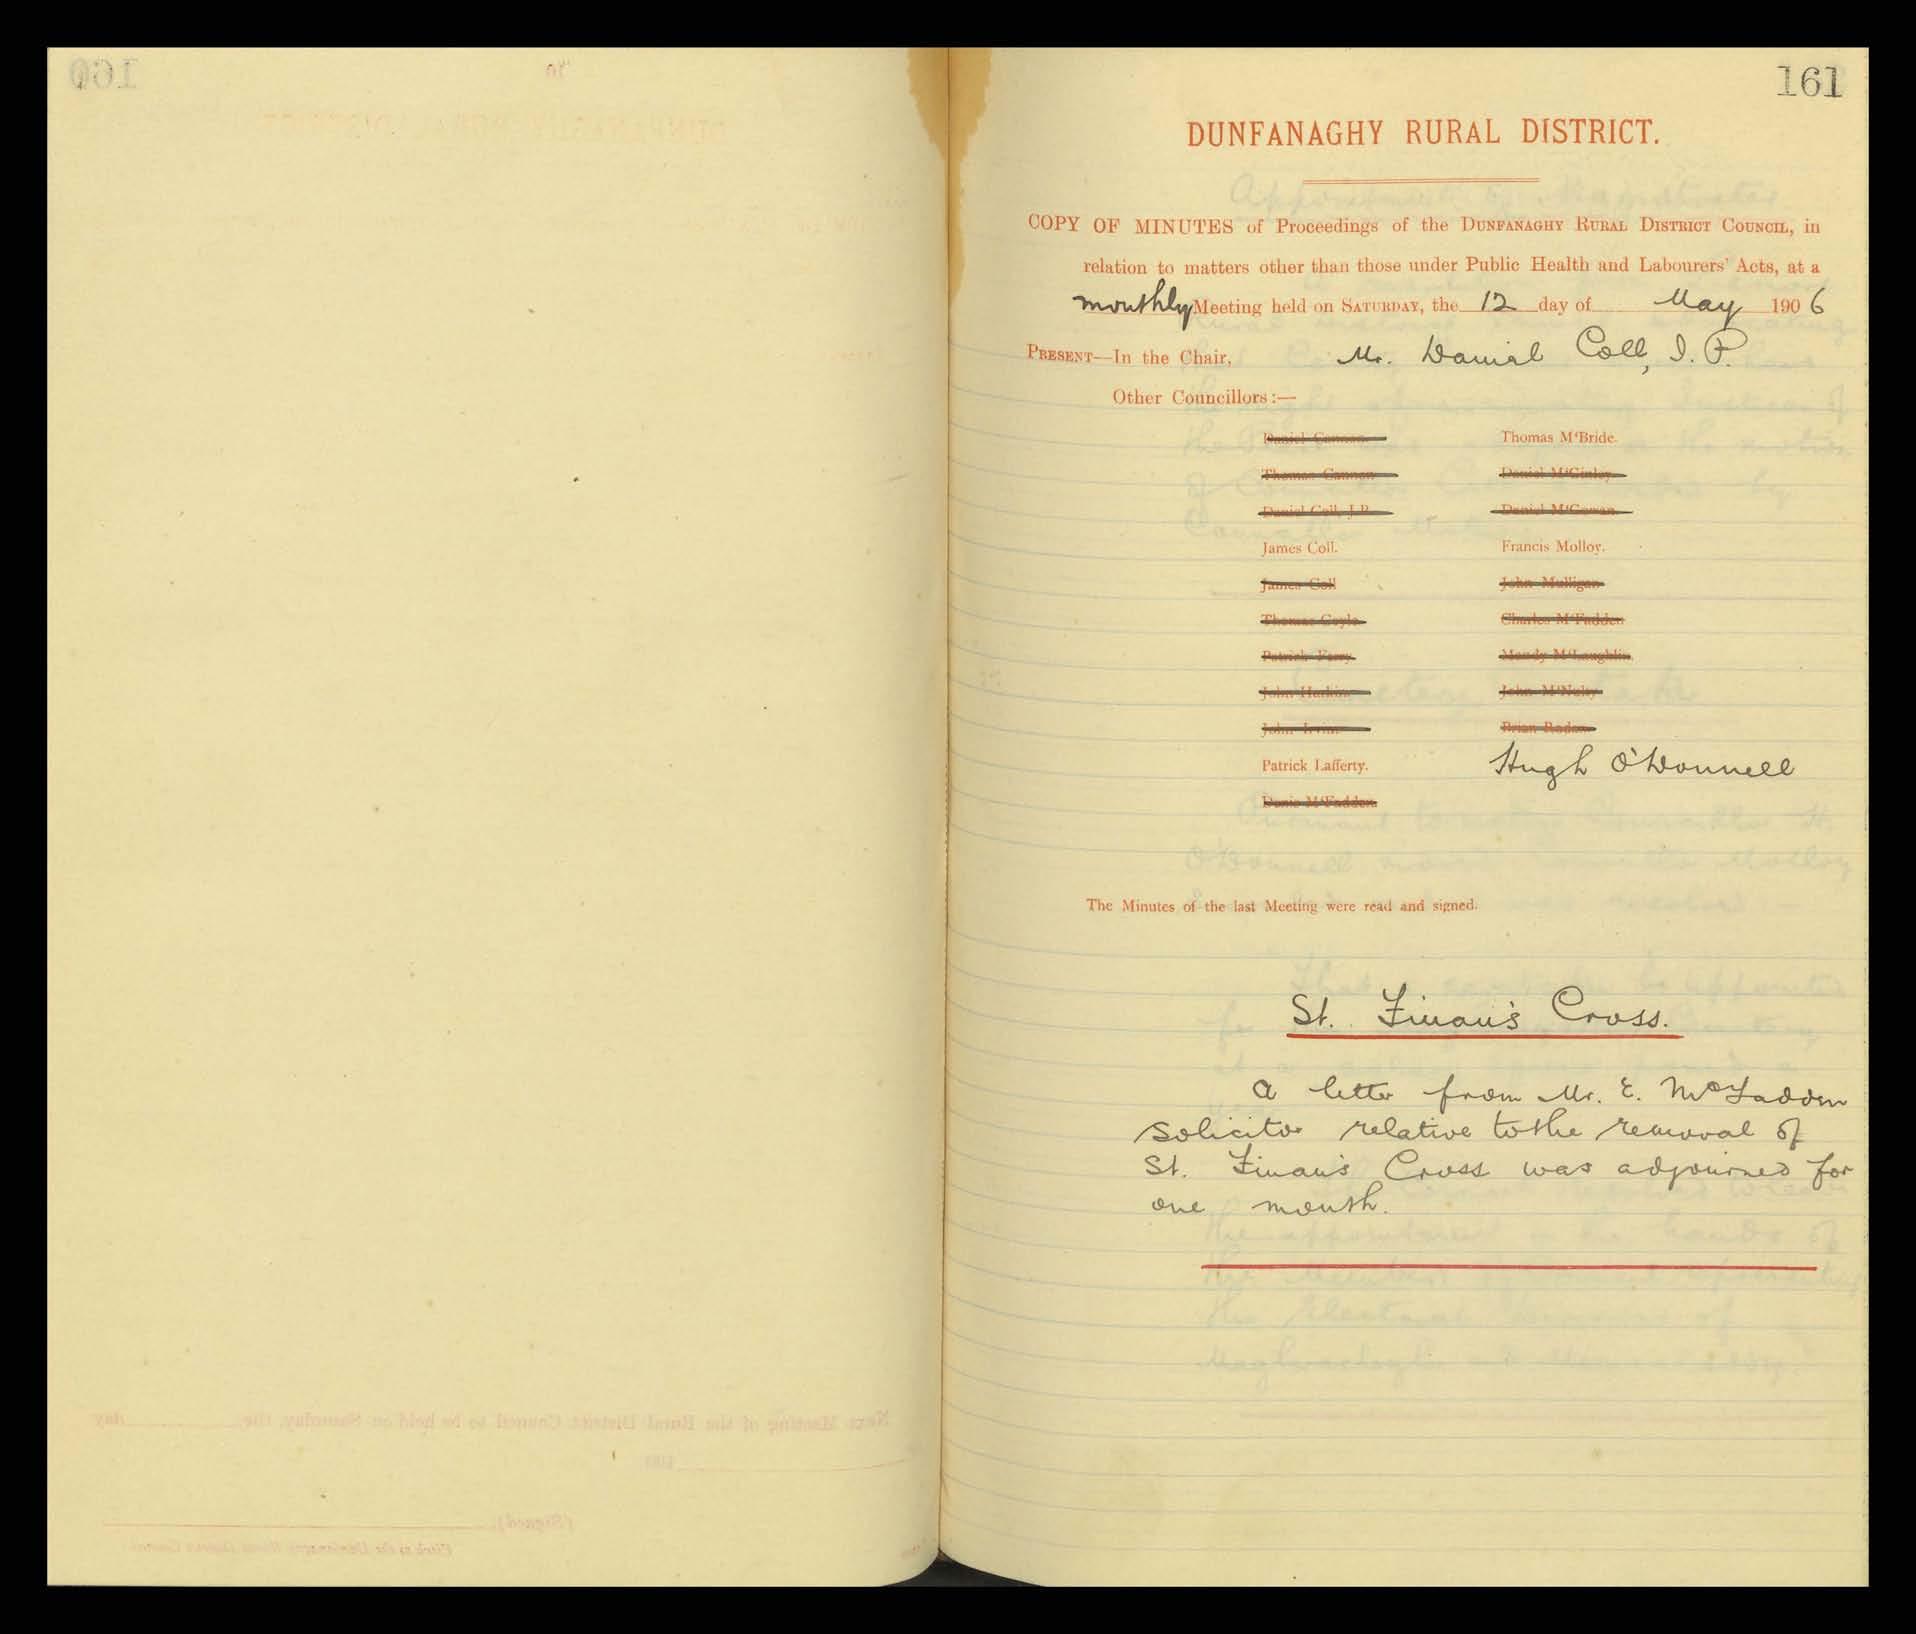 161
DUNFANAGHY RURAL DISTRICT.
COPY OF MINUTES of Proceedings of the DUNFANAGHY RURAL DISTRICT COUNCIL, in
relation to matters other than those under Public Health and Labourers' Acts, at a
monthly Meeting held on SATURDAY, the 12 day of May 1906
PRESENT—In the Chair, Mr. Daniel Coll, J. P.
Other Councillors:—
Daniel Cannon. Thomas M'Bride.
Thomas Cannon Daniel M'Ginley
Daniel Coll, J.P. Daniel M'Gowan.
James Coll. Francis Molloy.
James Coll John Mulligan
Thomas Coyle Charles M'Fadden
Patrick Ferry Mandy M'Laughlin.
John Harkin John M'Nulty
John Irvine
Patrick Lafferty. Hugh O'Donnell
Denis M'Fadden.
The Minutes of the last Meeting were read and signed.
St. Finan's Cross.
A letter from Mr. E. McFadden
solicitor relative to the removal of
St. Finan's Cross was adjourned for
one month.